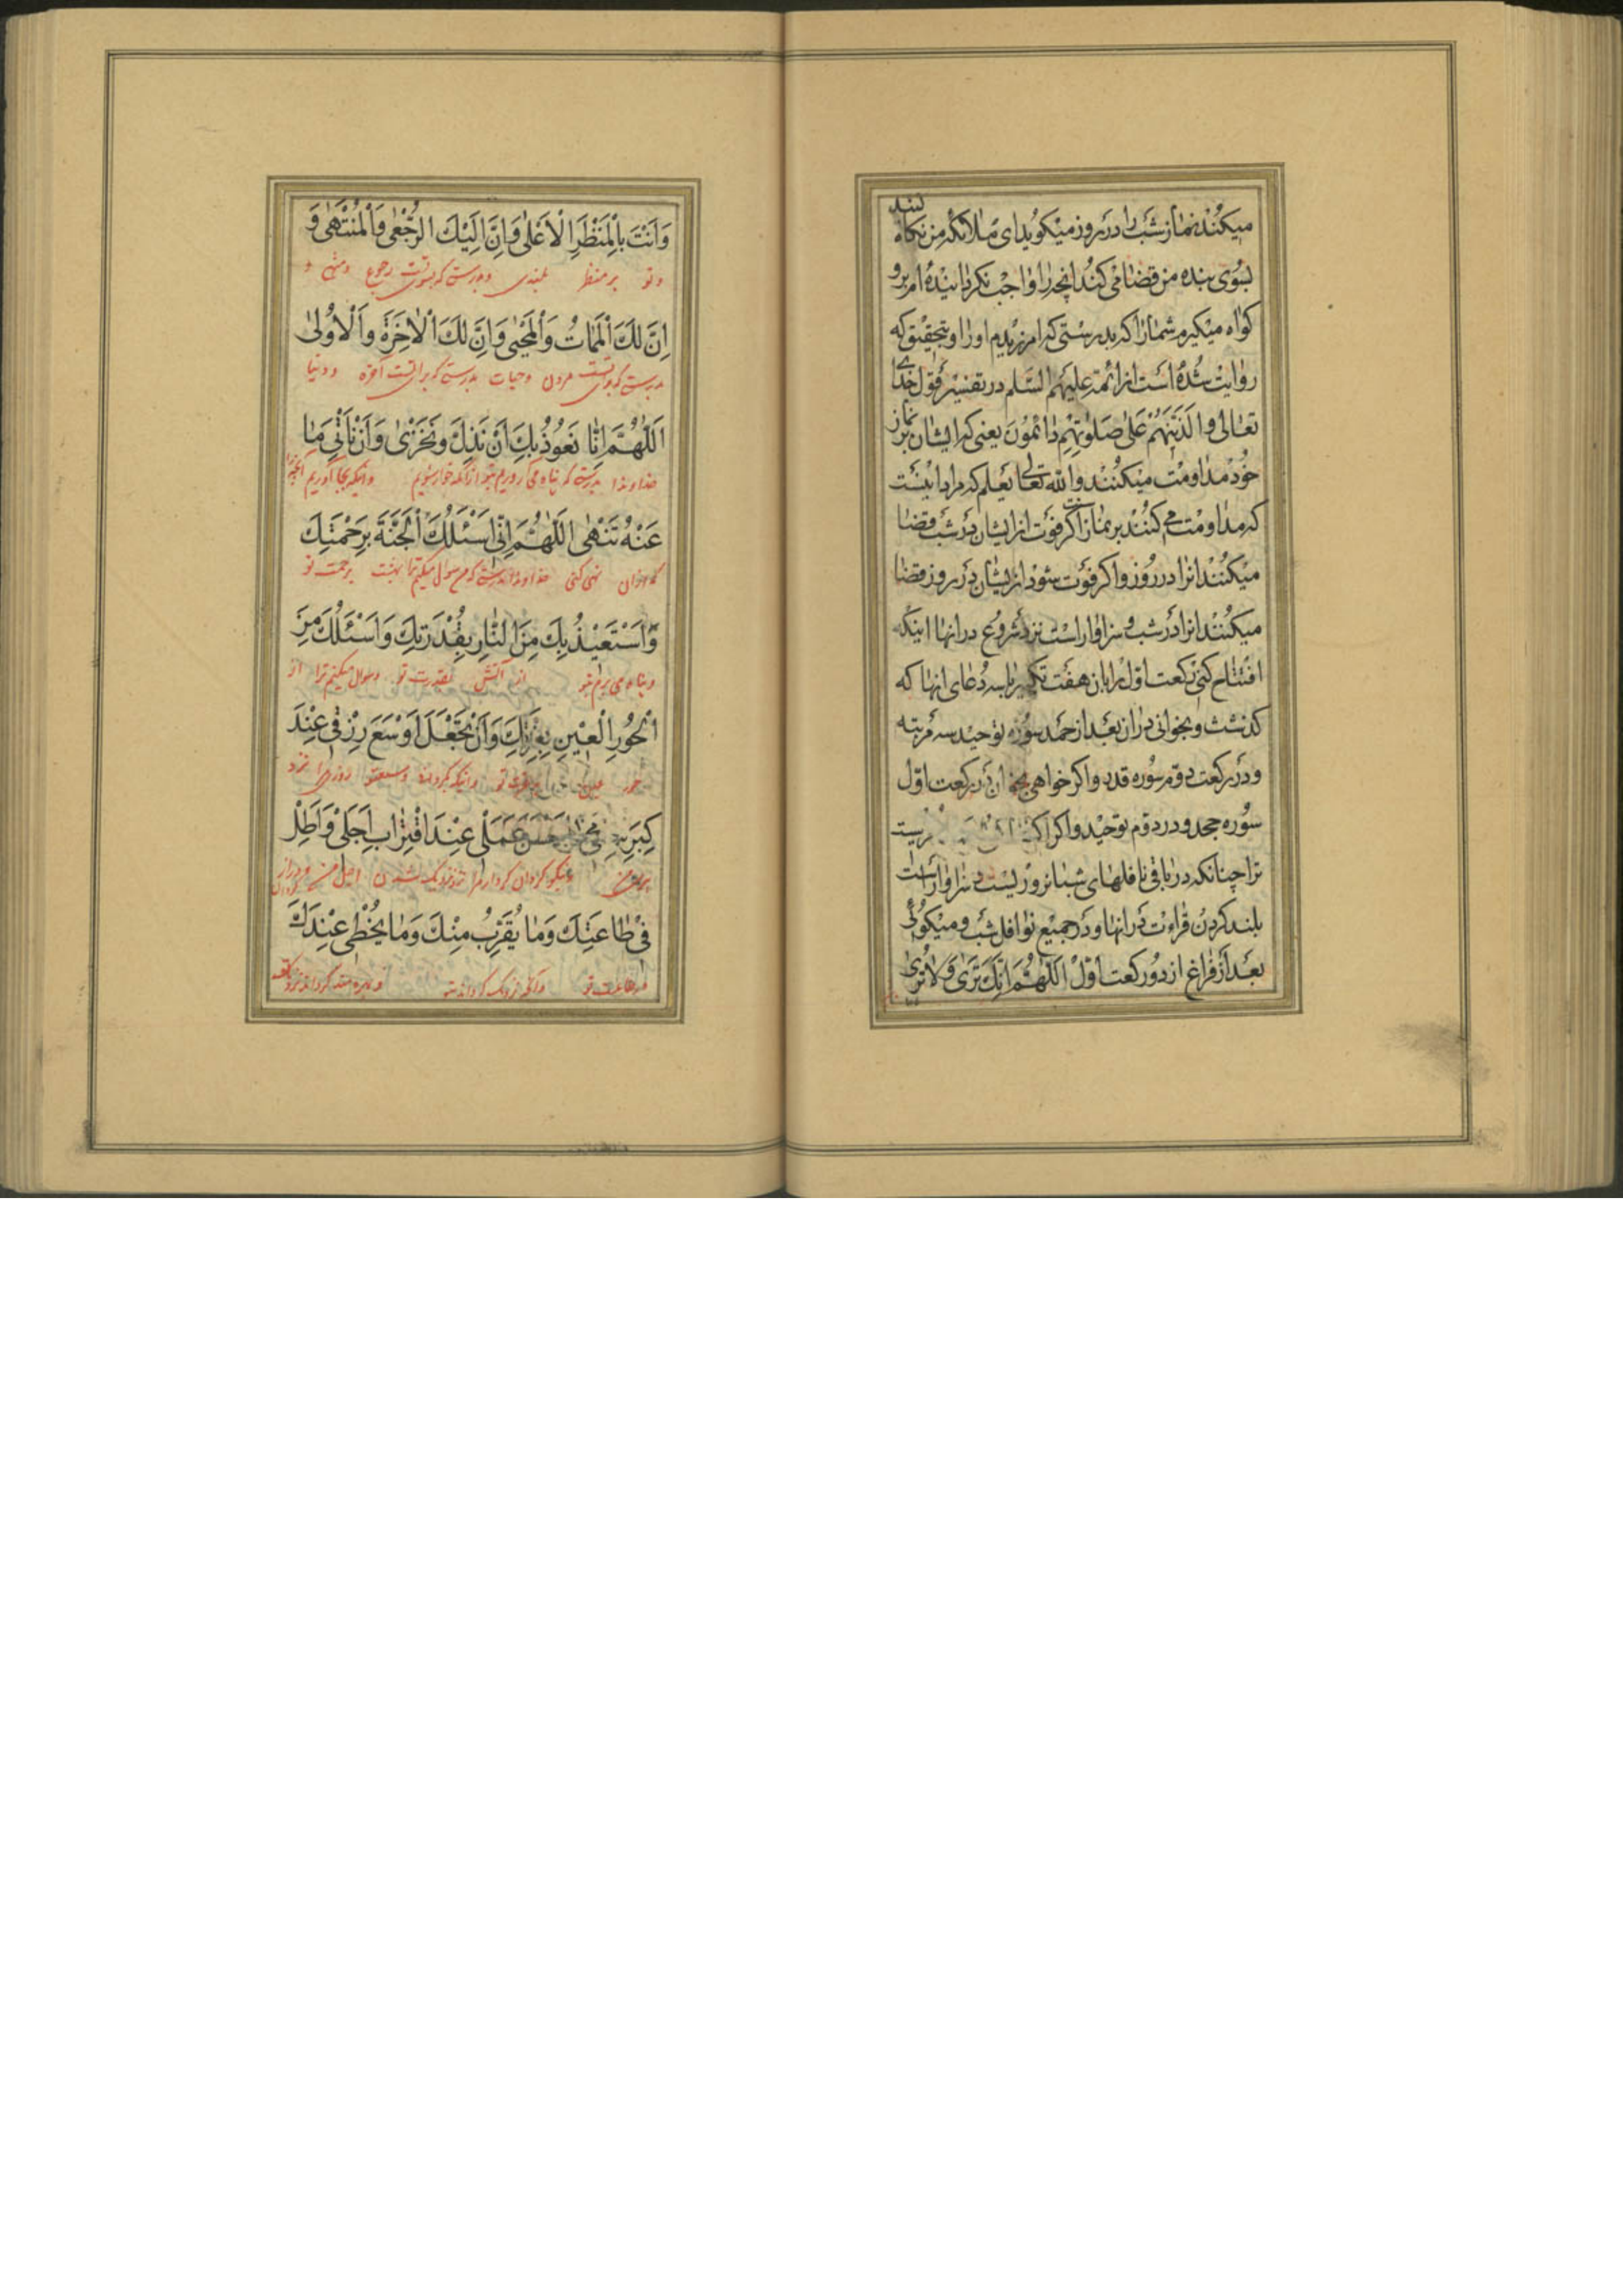 میکنند نماز شب را در روز میکوید ای ملائکه من نکاه
کنند
بسوی بنده من قضا می کند آنچه را واجب نکردانیده ام برو
کواه میکیرم شما را که بدرستی که امرزیدم او را و بتحقیق که
روایت شده است از ائمه علیهم السلم در تفسیر قول خدای
تعالی و الذینهم علی صلوتهم دائمون یعنی که ایشان بر نماز
خود مداومت میکنند و الله تعالی یعلم که مراد اینست
که مداومت می کنند بر نماز اگر فوت از ایشان در شب قضا
میکنند انرا در روز و اکر فوت شود از ایشان در روز قضا
میکنند انرا در شب و سزاوار است نزد شروع در انها اینکه
افتتاح کنی رکعت اول را بان هفت تکبیر با سه دعای انها که
کذشت و بخوانی در ان بعد از حمد سوره توحید سه مرتبه
و در رکعت دوم سوره قدر و اکر خواهی بخوان در رکعت اول
سوره جحد و در دوم توحید و اکر
ترا چنانکه در باقی نافلهای شبانروزیست و سزاوار است
بلند کردن قراءت در انها و در جمیع نوافل شب و میکوئی
بعد از فراغ از دو رکعت اول اللهم انک تری و لا تری
وَاَنْتَ بِالْمَنْظَرِ الْاَعْلٰی وَاِنَّ اِلَیْكَ الرُّجْعٰی وَالْمُنْتَهٰی وَ
و تو بر منظر بلندی و بدرستی که بسوی تست رجوع و منتهی و
اِنَّ لَكَ الْمَمَاتَ وَالْمَحْیٰی وَاِنَّ لَكَ الْاٰخِرَةَ وَالْاُولٰی
بدرستی که برای تست مردن و حیات بدرستی که برای تست آخرة و دنیا
اَللّٰهُمَّ اِنَّا نَعُوذُ بِكَ اَنْ نَذِلَّ وَنَخْزٰی وَاَنْ نَأْتِیَ مَا
خداوندا بدرستی که پناه می آوریم بتو از آنکه خوار شویم و اینکه بجا آوریم آنچیزیرا
عَنْهُ تَنْهٰی اَللّٰهُمَّ اِنّٖی اَسْئَلُكَ الْجَنَّةَ بِرَحْمَتِكَ
که از ان نهی کنی خداوندا بدرستی که من سوال میکنم ترا بهشت برحمت تو
وَاَسْتَعِیْذُ بِكَ مِنَ النَّارِ بِقُدْرَتِكَ وَاَسْئَلُكَ مِنَ
و پناه می برم بتو از آتش بقدرت تو و سوال میکنم ترا از
الْحُورِ الْعِیْنِ بِعِزَّتِكَ وَاَنْ تَجْعَلَ اَوْسَعَ رِزْقٖی عِنْدَ
حور عین بعزت تو و اینکه بکردانی وسیعتر روزی مرا نزد
كِبَرِ سِنّٖی وَاَحْسَنَ عَمَلٖی عِنْدَ اقْتِرَابِ اَجَلٖی وَاَطِلْ
پیری من و نیکو کردان کردار مرا نزد نزدیک شدن اجل من و دراز کردان
فٖی طَاعَتِكَ وَمَا یُقَرِّبُ مِنْكَ وَمَا یُحْظٖی عِنْدَكَ
در طاعت تو و آنچه نزدیک کرداند بتو و بهره مند کرداند نزد تو